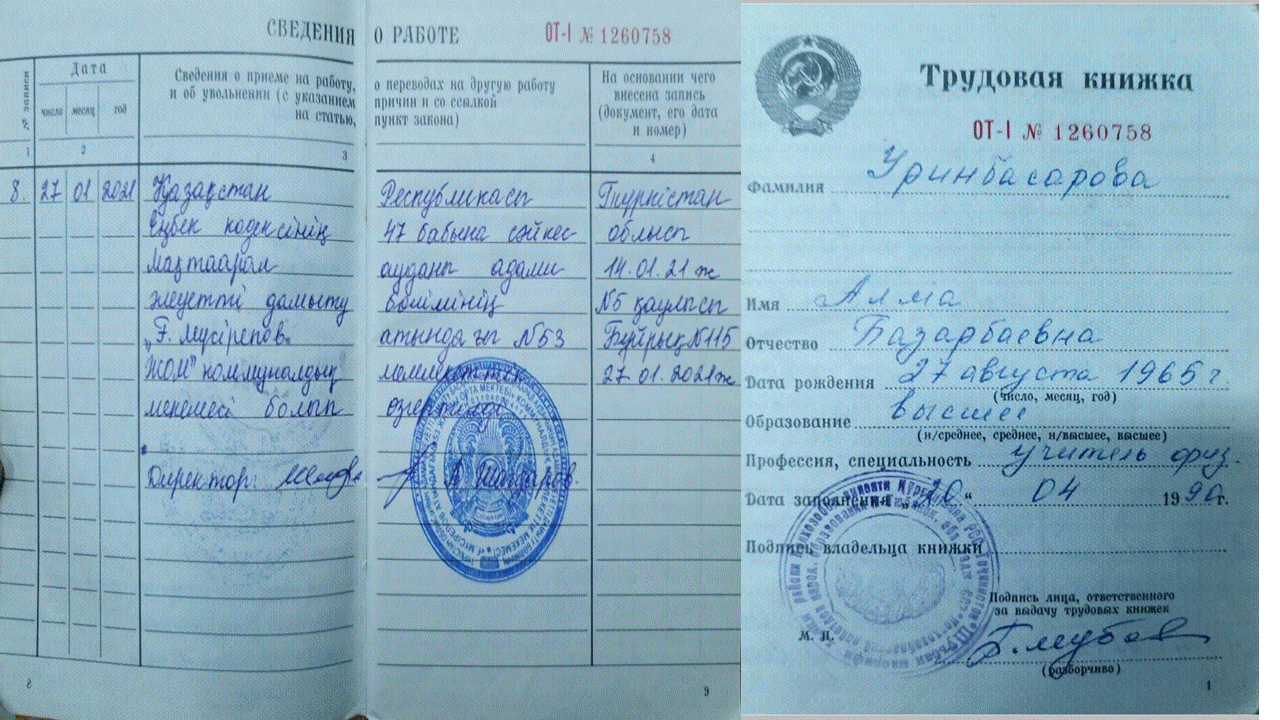 СВЕДЕНИЯ О РАБОТЕ ОТ-I № 1260758
№ записи
Дата
число месяц год
Сведения о приеме на работу, о переводах на другую работу
и об увольнении (с указанием причин и со ссылкой
на статью, пункт закона)
На основании чего
внесена запись
(документ, его дата
и номер)
1 2 3 4
8. 27 01 2021 Қазақстан Республикасы Түркістан
Еңбек кодексінің 47 бабына сәйкес облысы
Мақтаарал ауданы адами 14.01.21ж
әлеуетті дамыту бөлімінің №5 қаулысы
"Ғ. Мүсірепов" атындағы №53 Бұйрық №115
ЖОМ" коммуналдық мемлекеттік 27.01.2021ж
мекемесі болып өзгертілді
Директор:
8 9
Трудовая книжка
ОТ-I № 1260758
Фамилия Уринбасарова
Имя Алма
Отчество Базарбаевна
Дата рождения 27 августа 1965 г.
(число, месяц, год)
Образование высшее
(н/среднее, среднее, н/высшее, высшее)
Профессия, специальность учитель физ.
Дата заполнения „20“ 04 1990г.
Подпись владельца книжки
Подпись лица, ответственного
за выдачу трудовых книжек
М. П.
(разборчиво)
1